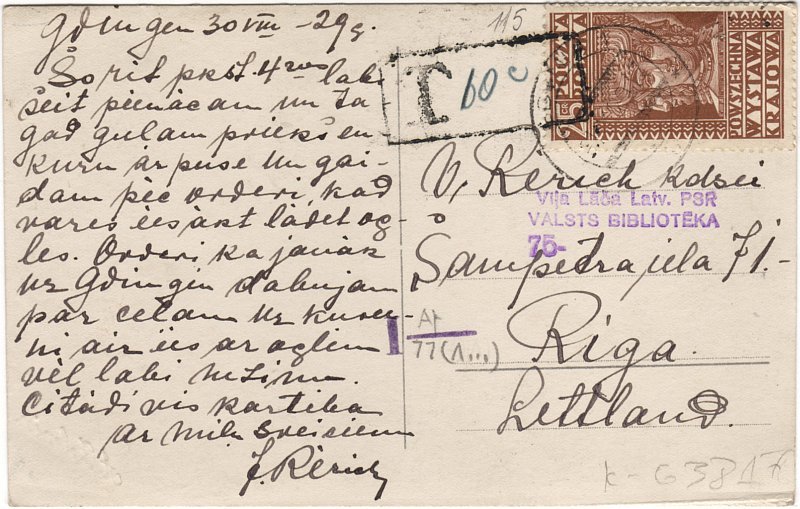 Gdingen 30 VIII - 29 g.
Šo rīt pkst. 4 ros labi
šeit pienācam un ta
gad gulam priekš en
kuru ārpuse un gai-
dam pēc orderi, kad
vares ēesāкt lādet og-
les. Orderi ka jānāk
uz Gdingen dabujam
par ceļam uz kuru
ni air ēes ar oglem
vēl labi nezinu.
Citādi vis kartiba
ar mīļ sveicieniem
J. Rērich
115
T 60 c
25 GR POCZTA
POWSZECHNA
WYSTAWA
KRAJOWA
V. Rērich kdzei
Viļa Lāča Latv. PSR
VALSTS BIBLIOTĒKA
75-
Sāmpētra iela 71.-
Riga.
Lettland.
Ar
77(1...)
K-G3817